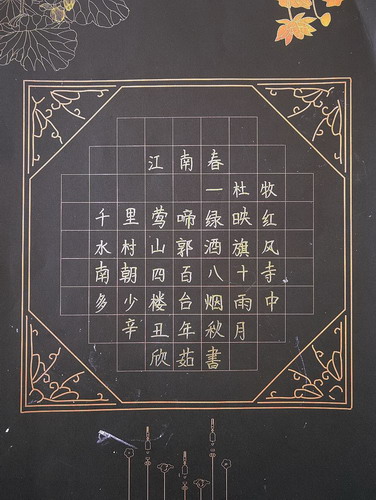 江南春
一杜牧
千里莺啼绿映红
水村山郭酒旗风
南朝四百八十寺
多少楼台烟雨中
辛丑年秋月
欣茹書